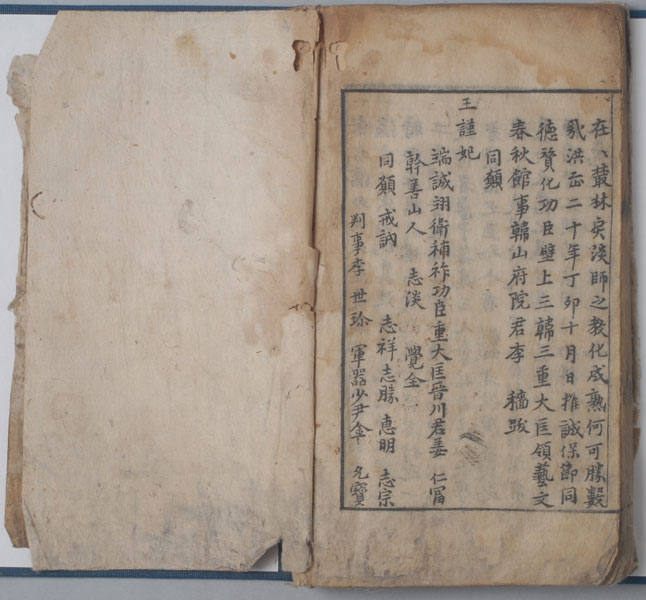 在〻叢林矣淡師之教化成熟何可勝數
哉洪武二十年丁卯十月日推誠保節同
德賛化功臣壁上三韓三重大匡領藝文
春秋館事韓山府院君李　穡跋
同願
王謹妃
端誠翊衛補祚功臣重大匡晉川君姜　仁富
幹善山人　志淡　覺全
同願　戒訥　志祥志勝　惠明　志宗
判事李　世珍　軍器少尹金　允寶